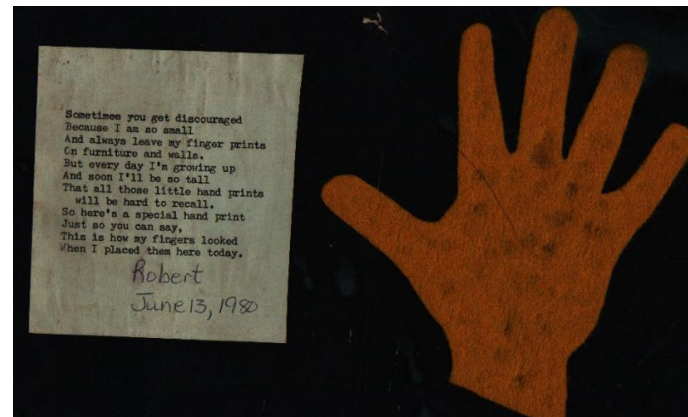 Sometimes you get discouraged
Because I am so small
And always leave my finger prints
On furniture and walls.
But every day I'm growing up
And soon I'll be so tall
That all those little hand prints
will be hard to recall.
So here's a special hand print
Just so you can say,
This is how my fingers looked
When I placed them here today.
Robert
June 13, 1980